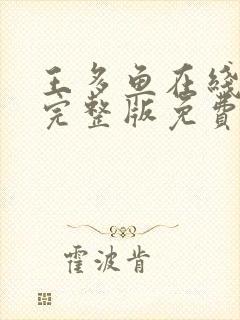 王多鱼在线
完整版免費
霍波肯